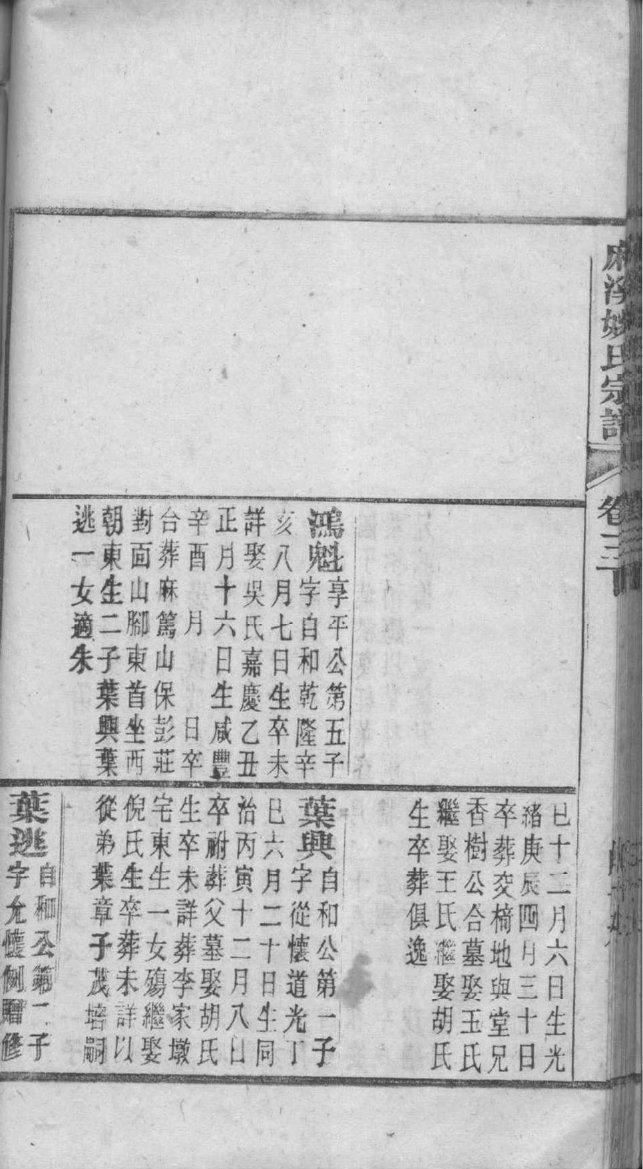 麻溪姚氏宗譜
卷三
鴻魁享平公第五子
字自和乾隆辛
亥八月七日生卒未
詳娶吳氏嘉慶乙丑
正月十六日生咸豐
辛酉 月 日卒
台葬麻篤山保彭莊
對面山腳東首坐西
朝東生二子葉興葉
逃一女適朱
巳十二月六日生光
緒庚辰四月三十日
卒葬交椅地與堂兄
香樹公合墓娶玉氏
繼娶王氏繼娶胡氏
生卒葬俱逸
葉興自和公第一子
字從懷道光丁
巳六月二十日生同
治丙寅十二月八日
卒祔葬父墓娶胡氏
生卒未詳葬李家墩
宅東生一女殤繼娶
倪氏生卒葬未詳以
從弟葉章子茂培嗣
葉逃自和公第二子
字允懷例贈修